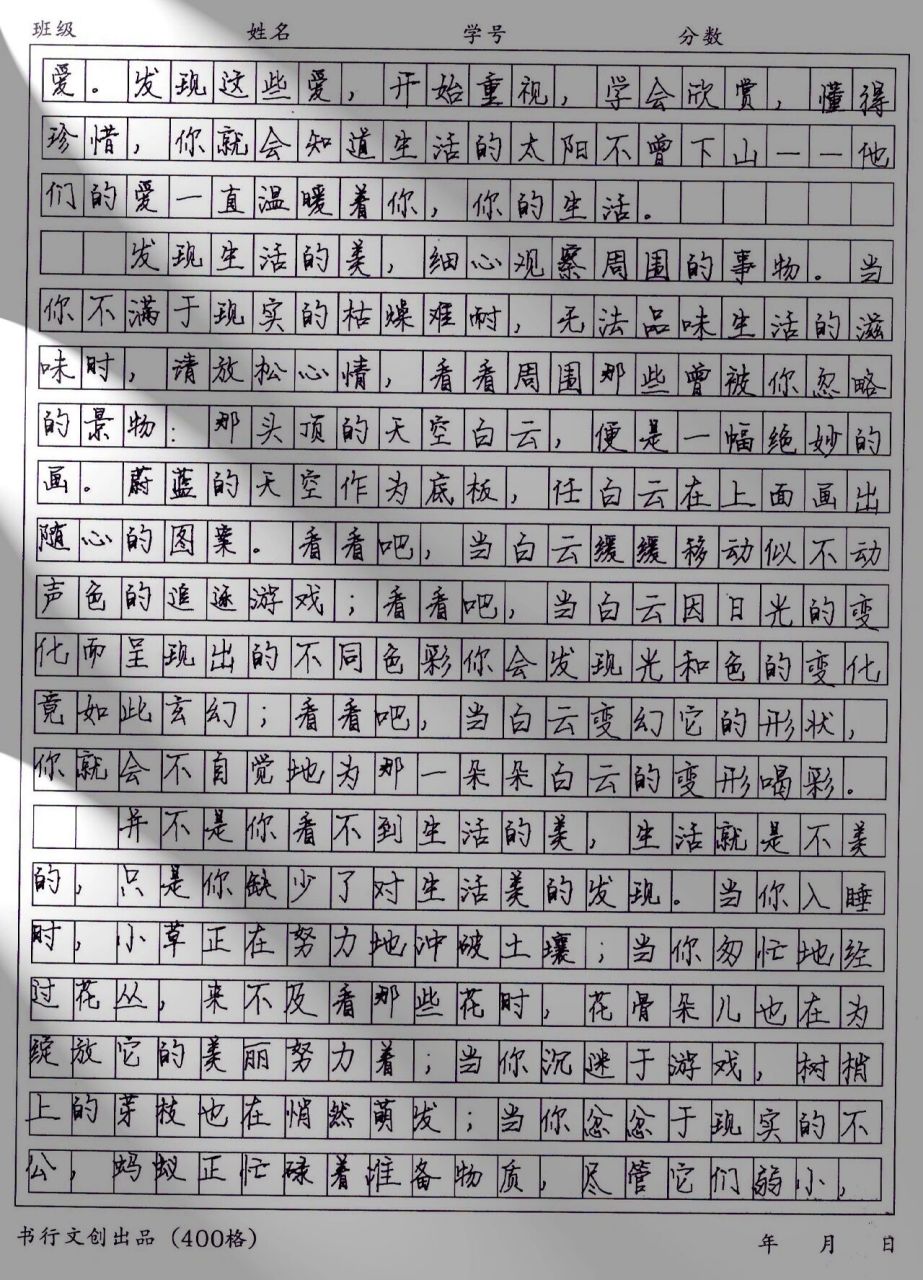 班级 姓名 学号 分数
爱。发现这些爱，开始重视，学会欣赏，懂得
珍惜，你就会知道生活的太阳不曾下山——他
们的爱一直温暖着你，你的生活。
发现生活的美，细心观察周围的事物。当
你不满于现实的枯燥难耐，无法品味生活的滋
味时，请放松心情，看看周围那些曾被你忽略
的景物：那头顶的天空白云，便是一幅绝妙的
画。蔚蓝的天空作为底板，任白云在上面画出
随心的图案。看看吧，当白云缓缓移动似不动
声色的追逐游戏；看看吧，当白云因日光的变
化而呈现出的不同色彩你会发现光和色的变化
竟如此玄幻；看看吧，当白云变幻它的形状，
你就会不自觉地为那一朵朵白云的变形喝彩。
并不是你看不到生活的美，生活就是不美
的，只是你缺少了对生活美的发现。当你入睡
时，小草正在努力地冲破土壤；当你匆忙地经
过花丛，来不及看那些花时，花骨朵儿也在为
绽放它的美丽努力着；当你沉迷于游戏，树梢
上的芽枝也在悄然萌发；当你忿忿于现实的不
公，蚂蚁正忙碌着准备物质，尽管它们弱小，
书行文创出品（400格） 年 月 日